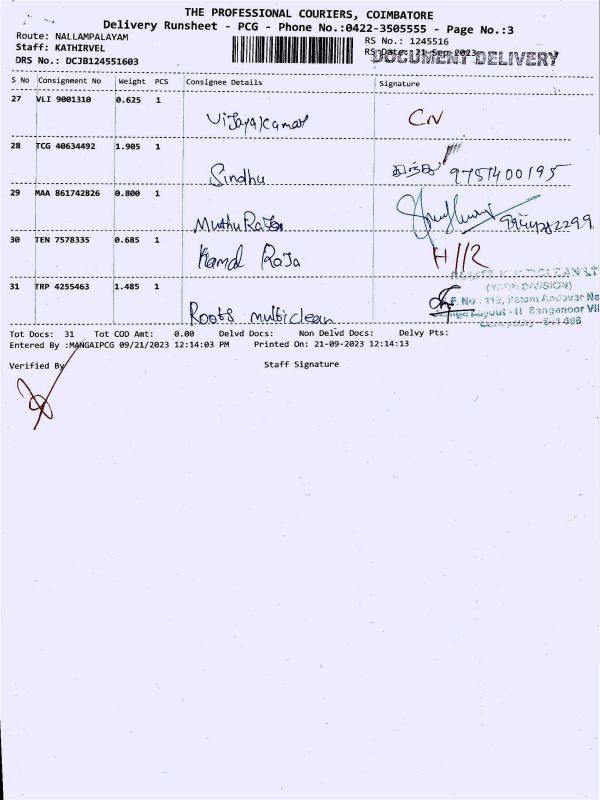 THE PROFESSIONAL COURIERS, COIMBATORE
Delivery Runsheet - PCG - Phone No.:0422-3505555 - Page No.:3
Route: NALLAMPALAYAM
RS No.: 1245516
Staff: KATHIRVEL
RS Date: 21-Sep-2023
DOCUMENT DELIVERY
DRS No.: DCJB124551603
S No Consignment No Weight PCS Consignee Details Signature
27 VLI 9001310 0.625 1
Vijayakumar CN
28 TCG 40634492 1.905 1
Sindhu 9751400195
29 MAA 861742826 0.800 1
Muthu Raja
30 TEN 7578335 0.685 1
Kamal Raja H/R
31 TRP 4255463 1.485 1
Roots multiclean
Tot Docs: 31 Tot COD Amt: 0.00 Delvd Docs: Non Delvd Docs: Delvy Pts:
Entered By :MANGAIPCG 09/21/2023 12:14:03 PM Printed On: 21-09-2023 12:14:13
Verified By Staff Signature